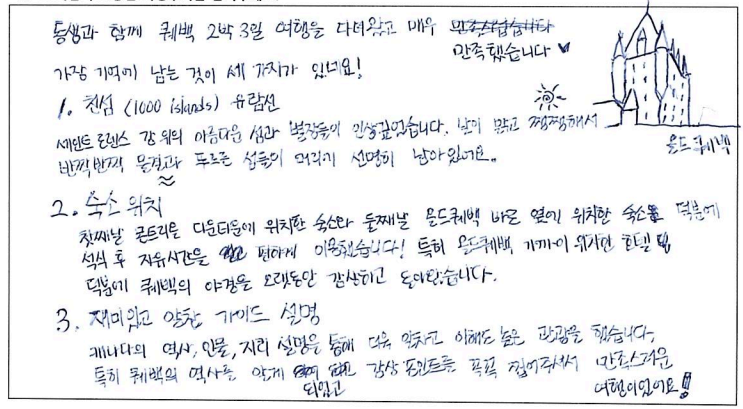 동생과 함께 퀘백 2박 3일 여행을 다녀왔고 매우 만족했습니다
가장 기억에 남는 것이 세 가지가 있네요!
1. 천섬 (1000 islands) 유람선
세인트로렌스 강 위의 아름다운 섬과 별장들이 인상깊었습니다. 날이 맑고 쨍쨍해서
반짝반짝 물결과 푸르른 섬들이 머리에 선명히 남아있어요.
올드퀘백
2. 숙소 위치
첫째날 몬트리올 다운타운에 위치한 숙소와 둘째날 올드퀘백 바로 옆에 위치한 숙소 덕분에
석식 후 자유시간을 편하게 이용했습니다! 특히 올드퀘백 가까이 위치한 호텔
덕분에 퀘백의 야경을 오랫동안 감상하고 돌아왔습니다.
3. 재미있고 알찬 가이드 설명
캐나다의 역사, 인물, 지리 설명을 통해 더욱 알차고 이해도 높은 관광을 했습니다.
특히 퀘백의 역사를 알게 되었고 감상 포인트를 콕콕 찝어주셔서 만족스러운
여행이었어요!!